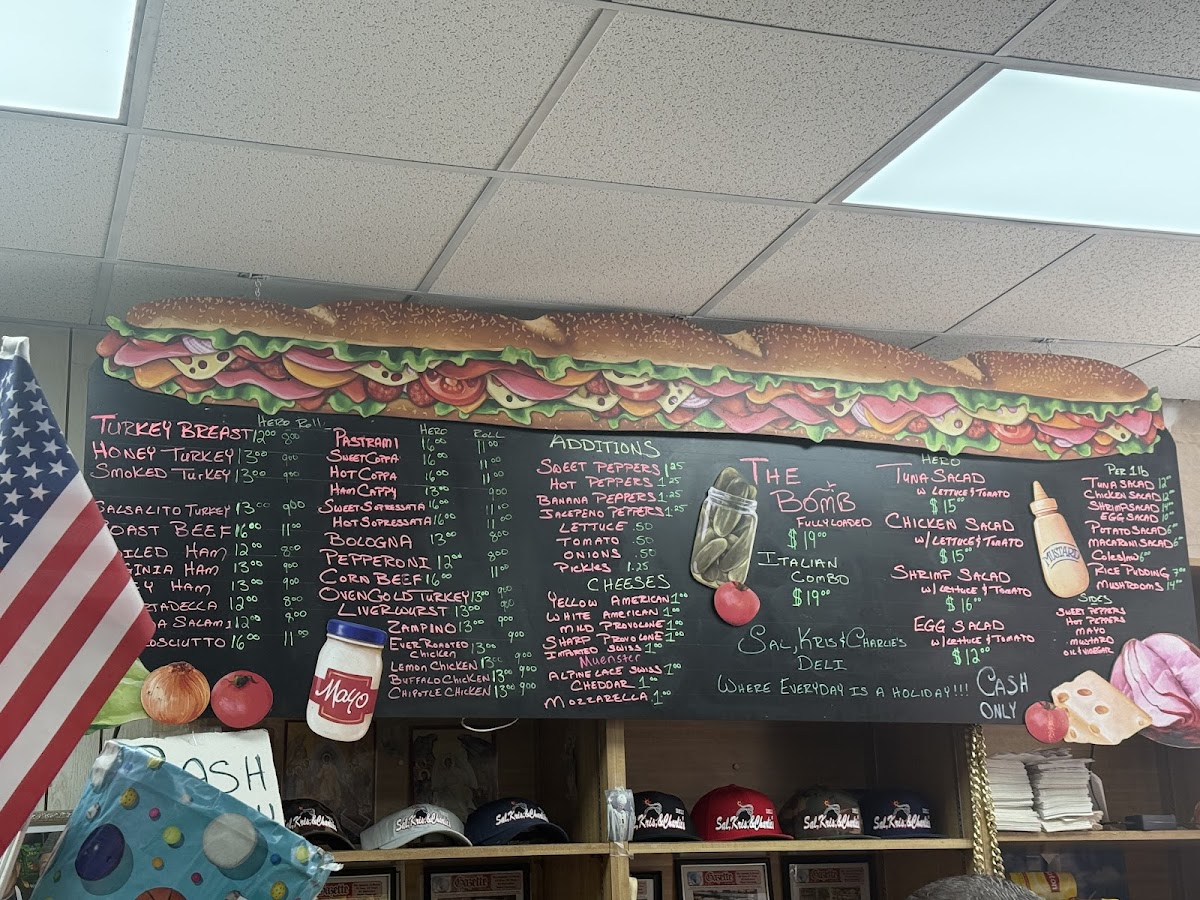 HERO ROLL
TURKEY BREAST 12⁰⁰ 8⁰⁰
HONEY TURKEY 13⁰⁰ 9⁰⁰
SMOKED TURKEY 13⁰⁰ 9⁰⁰
SALSALITO TURKEY 13⁰⁰ 9⁰⁰
ROAST BEEF 16⁰⁰ 11⁰⁰
HAM 12⁰⁰ 8⁰⁰
HAM 13⁰⁰ 9⁰⁰
HAM 13⁰⁰ 9⁰⁰
12⁰⁰ 8⁰⁰
SALAMI 12⁰⁰ 8⁰⁰
16⁰⁰ 11⁰⁰
HERO ROLL
PASTRAMI 16⁰⁰ 11⁰⁰
SWEET COPPA 16⁰⁰ 11⁰⁰
HOT COPPA 16⁰⁰ 11⁰⁰
HAM CAPPY 13⁰⁰ 9⁰⁰
SWEET SOPRESSATA 16⁰⁰ 11⁰⁰
HOT SOPRESSATA 16⁰⁰ 11⁰⁰
BOLOGNA 13⁰⁰ 8⁰⁰
PEPPERONI 12⁰⁰ 8⁰⁰
CORN BEEF 16⁰⁰ 11⁰⁰
OVENGOLD TURKEY 13⁰⁰ 9⁰⁰
LIVERWURST 13⁰⁰ 9⁰⁰
ZAMPINO 13⁰⁰ 9⁰⁰
EVER ROASTED
CHICKEN 13⁰⁰ 9⁰⁰
LEMON CHICKEN 13⁰⁰ 9⁰⁰
BUFFALO CHICKEN 13⁰⁰ 9⁰⁰
CHIPOTLE CHICKEN 13⁰⁰ 9⁰⁰
ADDITIONS
SWEET PEPPERS 1.25
HOT PEPPERS 1.25
BANANA PEPPERS 1.25
JALEPENO PEPPERS 1.25
LETTUCE .50
TOMATO .50
ONIONS .50
PICKLES 1.25
CHEESES
YELLOW AMERICAN 1⁰⁰
WHITE AMERICAN 1⁰⁰
MILD PROVOLONE 1⁰⁰
SHARP PROVOLONE 1⁰⁰
IMPORTED SWISS 1⁰⁰
MUENSTER
ALPINE LACE SWISS 1⁰⁰
CHEDDAR 1⁰⁰
MOZZARELLA 1⁰⁰
THE
BOMB
FULLY LOADED
$19⁰⁰
ITALIAN
COMBO
$19⁰⁰
SAL, KRIS & CHARLIE'S
DELI
WHERE EVERYDAY IS A HOLIDAY!!!
HERO
TUNA SALAD
W LETTUCE & TOMATO
$15⁰⁰
CHICKEN SALAD
W/ LETTUCE & TOMATO
$15⁰⁰
SHRIMP SALAD
W/ LETTUCE & TOMATO
$16⁰⁰
EGG SALAD
W/ LETTUCE & TOMATO
$12⁰⁰
CASH
ONLY
PER 1 LB
TUNA SALAD 12⁰⁰
CHICKEN SALAD 12⁰⁰
SHRIMP SALAD 14⁰⁰
EGG SALAD 10⁰⁰
POTATO SALAD 6⁰⁰
MACARONI SALAD 6⁰⁰
COLESLAW 6⁰⁰
RICE PUDDING 7⁰⁰
MUSHROOMS 14⁰⁰
SIDES
SWEET PEPPERS
HOT PEPPERS
MAYO
MUSTARD
OIL & VINEGAR
MUSTARD
Mayo
CASH
Sal, Kris, & Charlie's
Sal, Kris, & Charlie's
Sal, Kris, & Charlie's
Sal, Kris, & Charlie's
Sal, Kris, & Charlie's
Sal, Kris, & Charlie's
Gazette
Gazette
Gazette